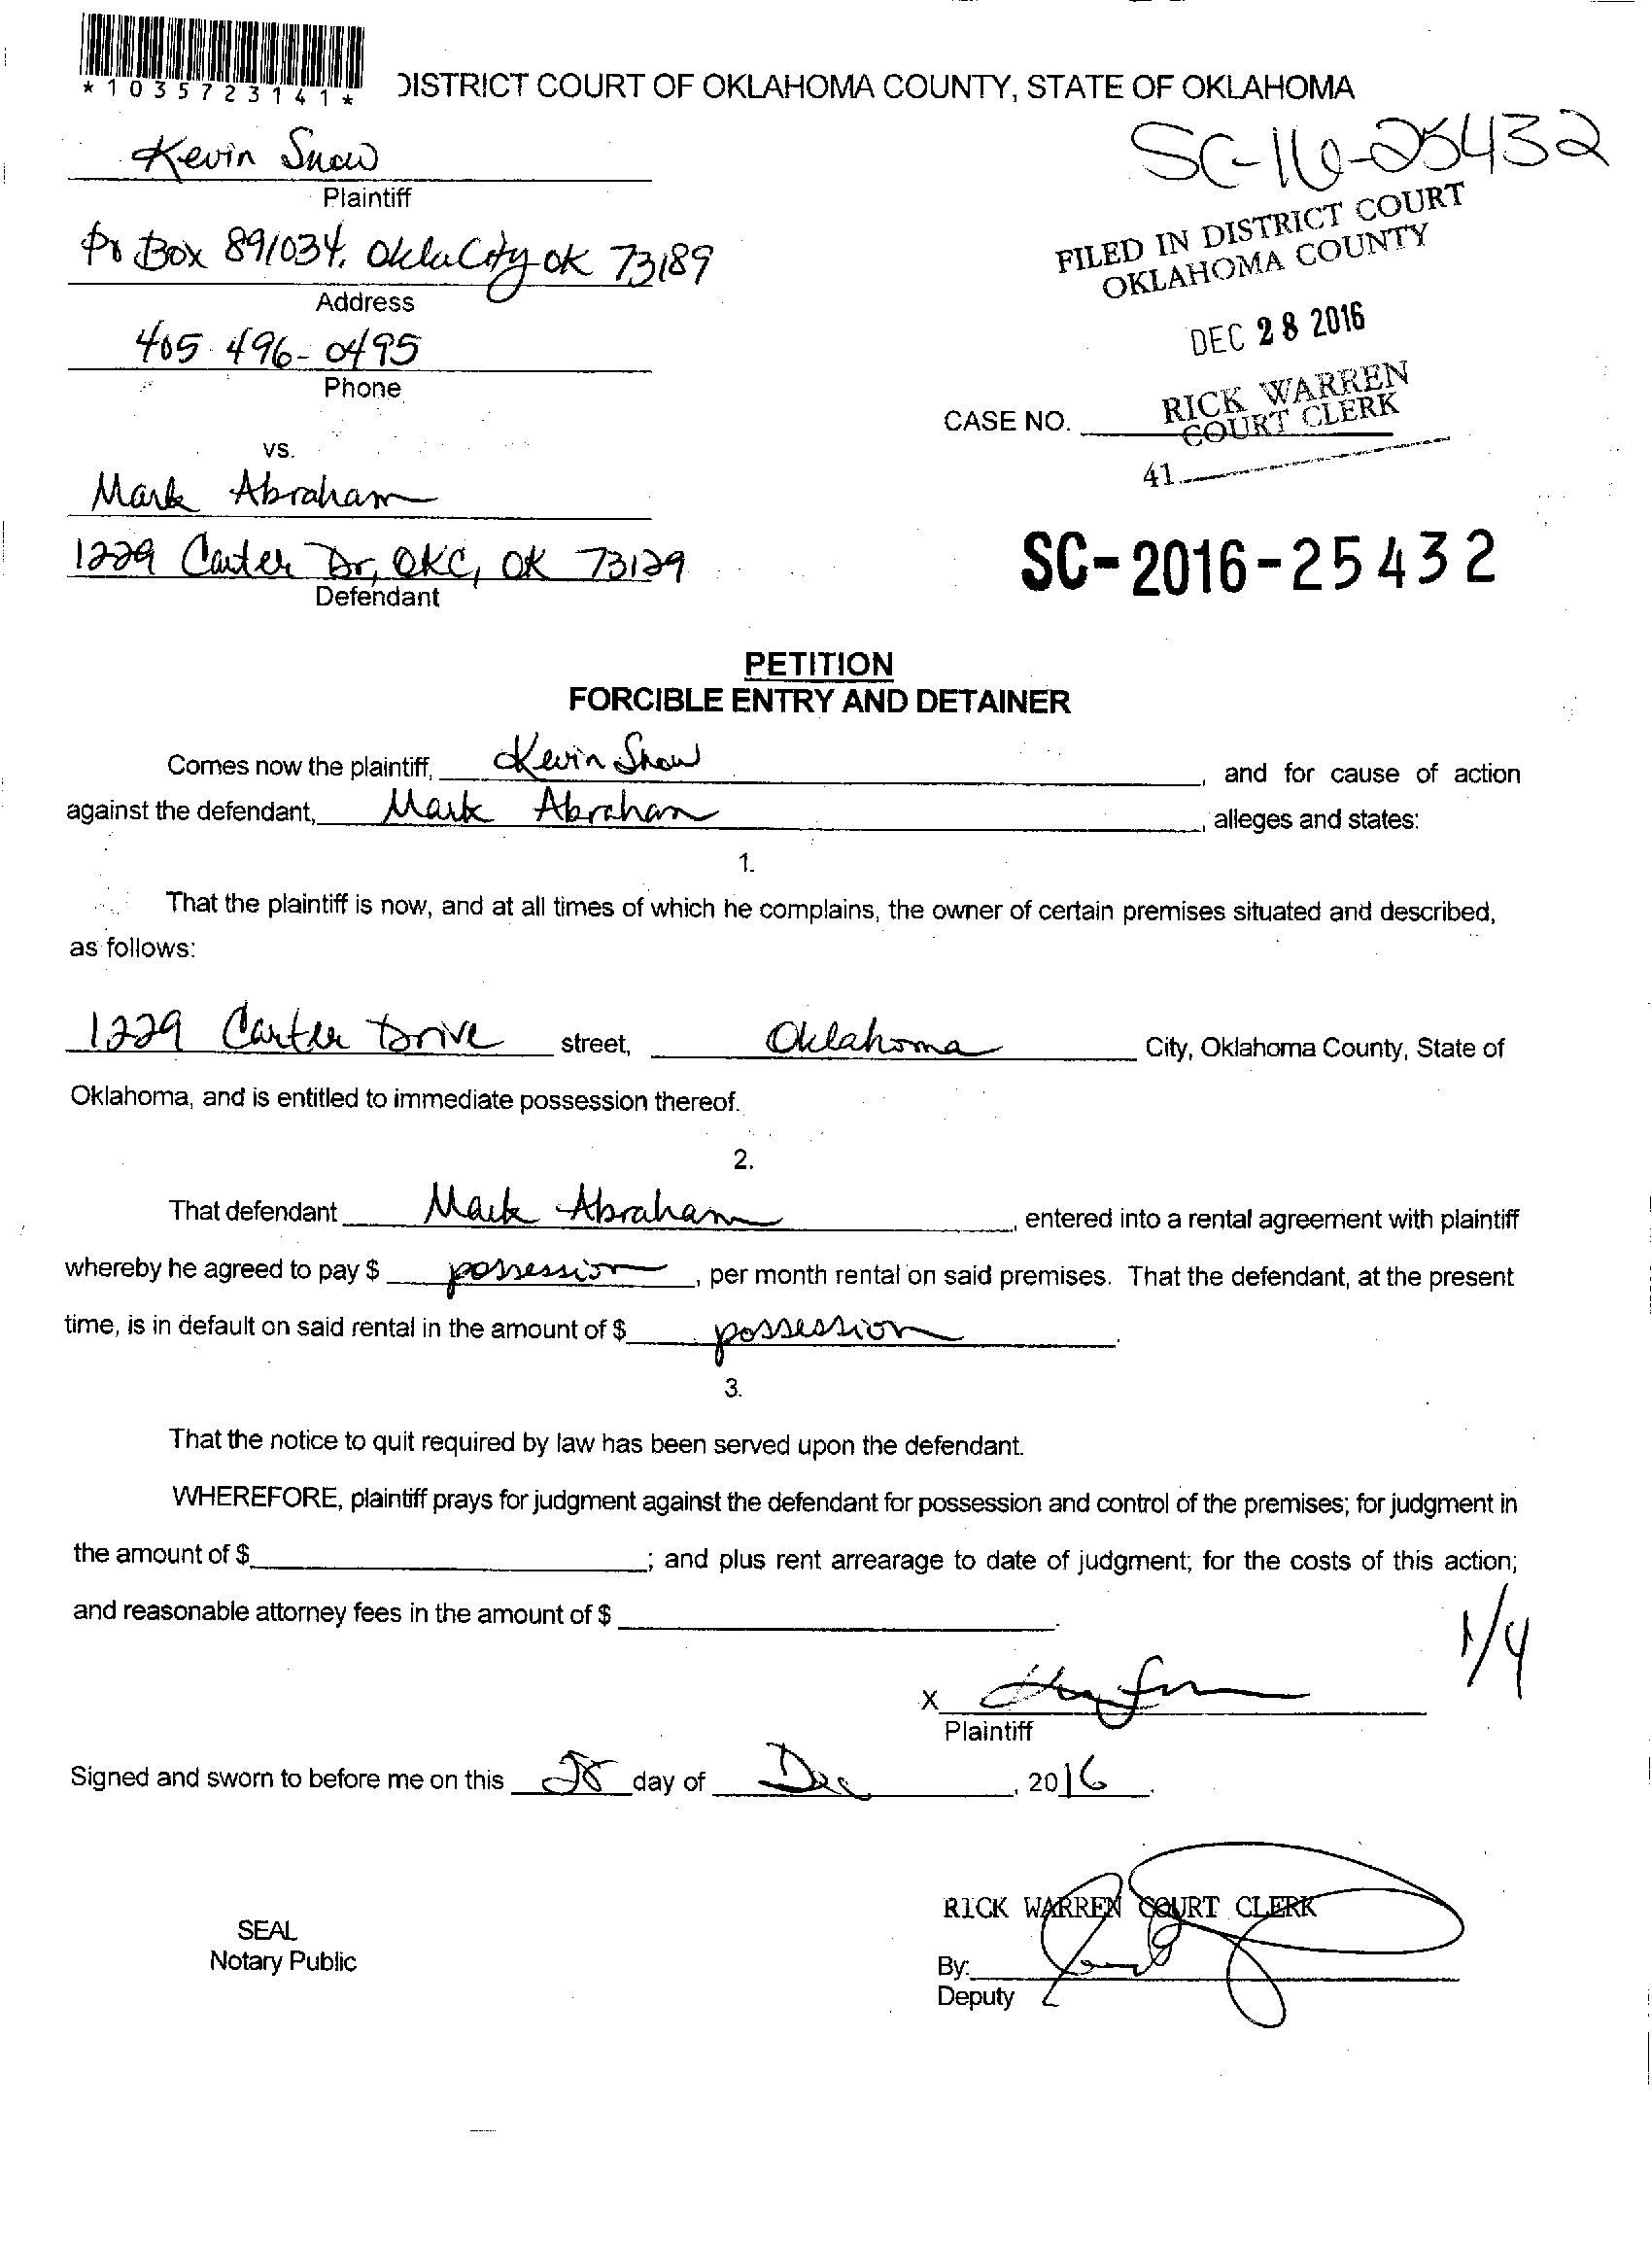 *1035723141*
DISTRICT COURT OF OKLAHOMA COUNTY, STATE OF OKLAHOMA
SC-16-25432
Kevin Snow
Plaintiff
PO Box 891034, Okla City OK 73189
Address
405 496-0495
Phone
FILED IN DISTRICT COURT
OKLAHOMA COUNTY
DEC 28 2016
RICK WARREN
COURT CLERK
CASE NO.
41
vs.
Mark Abraham
1229 Carter Dr, OKC, OK 73129
Defendant
SC-2016-25432
PETITION
FORCIBLE ENTRY AND DETAINER
Comes now the plaintiff, Kevin Snow, and for cause of action
against the defendant, Mark Abraham, alleges and states:
1.
That the plaintiff is now, and at all times of which he complains, the owner of certain premises situated and described,
as follows:
1229 Carter Drive street, Oklahoma City, Oklahoma County, State of
Oklahoma, and is entitled to immediate possession thereof.
2.
That defendant Mark Abraham, entered into a rental agreement with plaintiff
whereby he agreed to pay $ possession, per month rental on said premises. That the defendant, at the present
time, is in default on said rental in the amount of $ possession.
3.
That the notice to quit required by law has been served upon the defendant.
WHEREFORE, plaintiff prays for judgment against the defendant for possession and control of the premises; for judgment in
the amount of $ ; and plus rent arrearage to date of judgment; for the costs of this action;
and reasonable attorney fees in the amount of $ .
1/4
X
Plaintiff
Signed and sworn to before me on this 28 day of Dec, 2016.
RICK WARREN COURT CLERK
SEAL
Notary Public
By:
Deputy